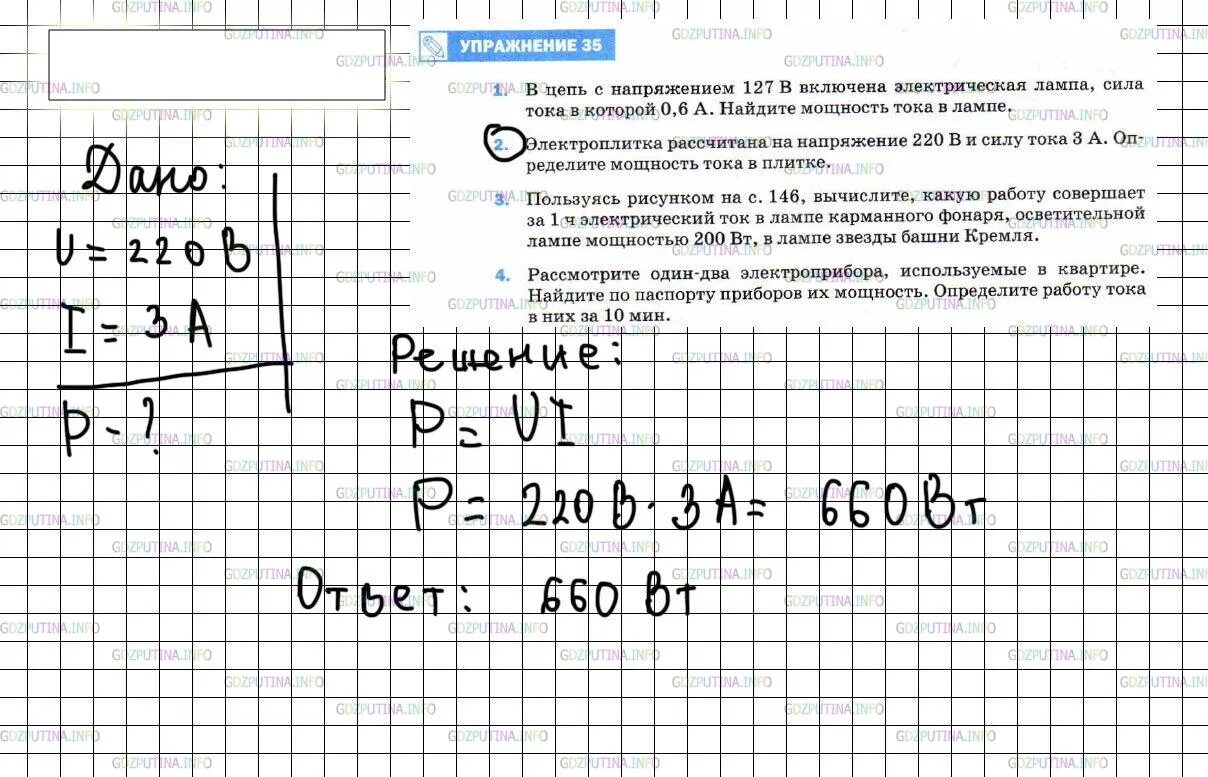 УПРАЖНЕНИЕ 35
1. В цепь с напряжением 127 В включена электрическая лампа, сила
тока в которой 0,6 А. Найдите мощность тока в лампе.
2. Электроплитка рассчитана на напряжение 220 В и силу тока 3 А. Оп-
ределите мощность тока в плитке.
3. Пользуясь рисунком на с. 146, вычислите, какую работу совершает
за 1 ч электрический ток в лампе карманного фонаря, осветительной
лампе мощностью 200 Вт, в лампе звезды башни Кремля.
4. Рассмотрите один-два электроприбора, используемые в квартире.
Найдите по паспорту приборов их мощность. Определите работу тока
в них за 10 мин.
Дано:
U = 220 В
I = 3 А
P = ?
Решение:
P = UI
P = 220 В · 3 А = 660 Вт
Ответ: 660 Вт
GDZPUTINA.INFO